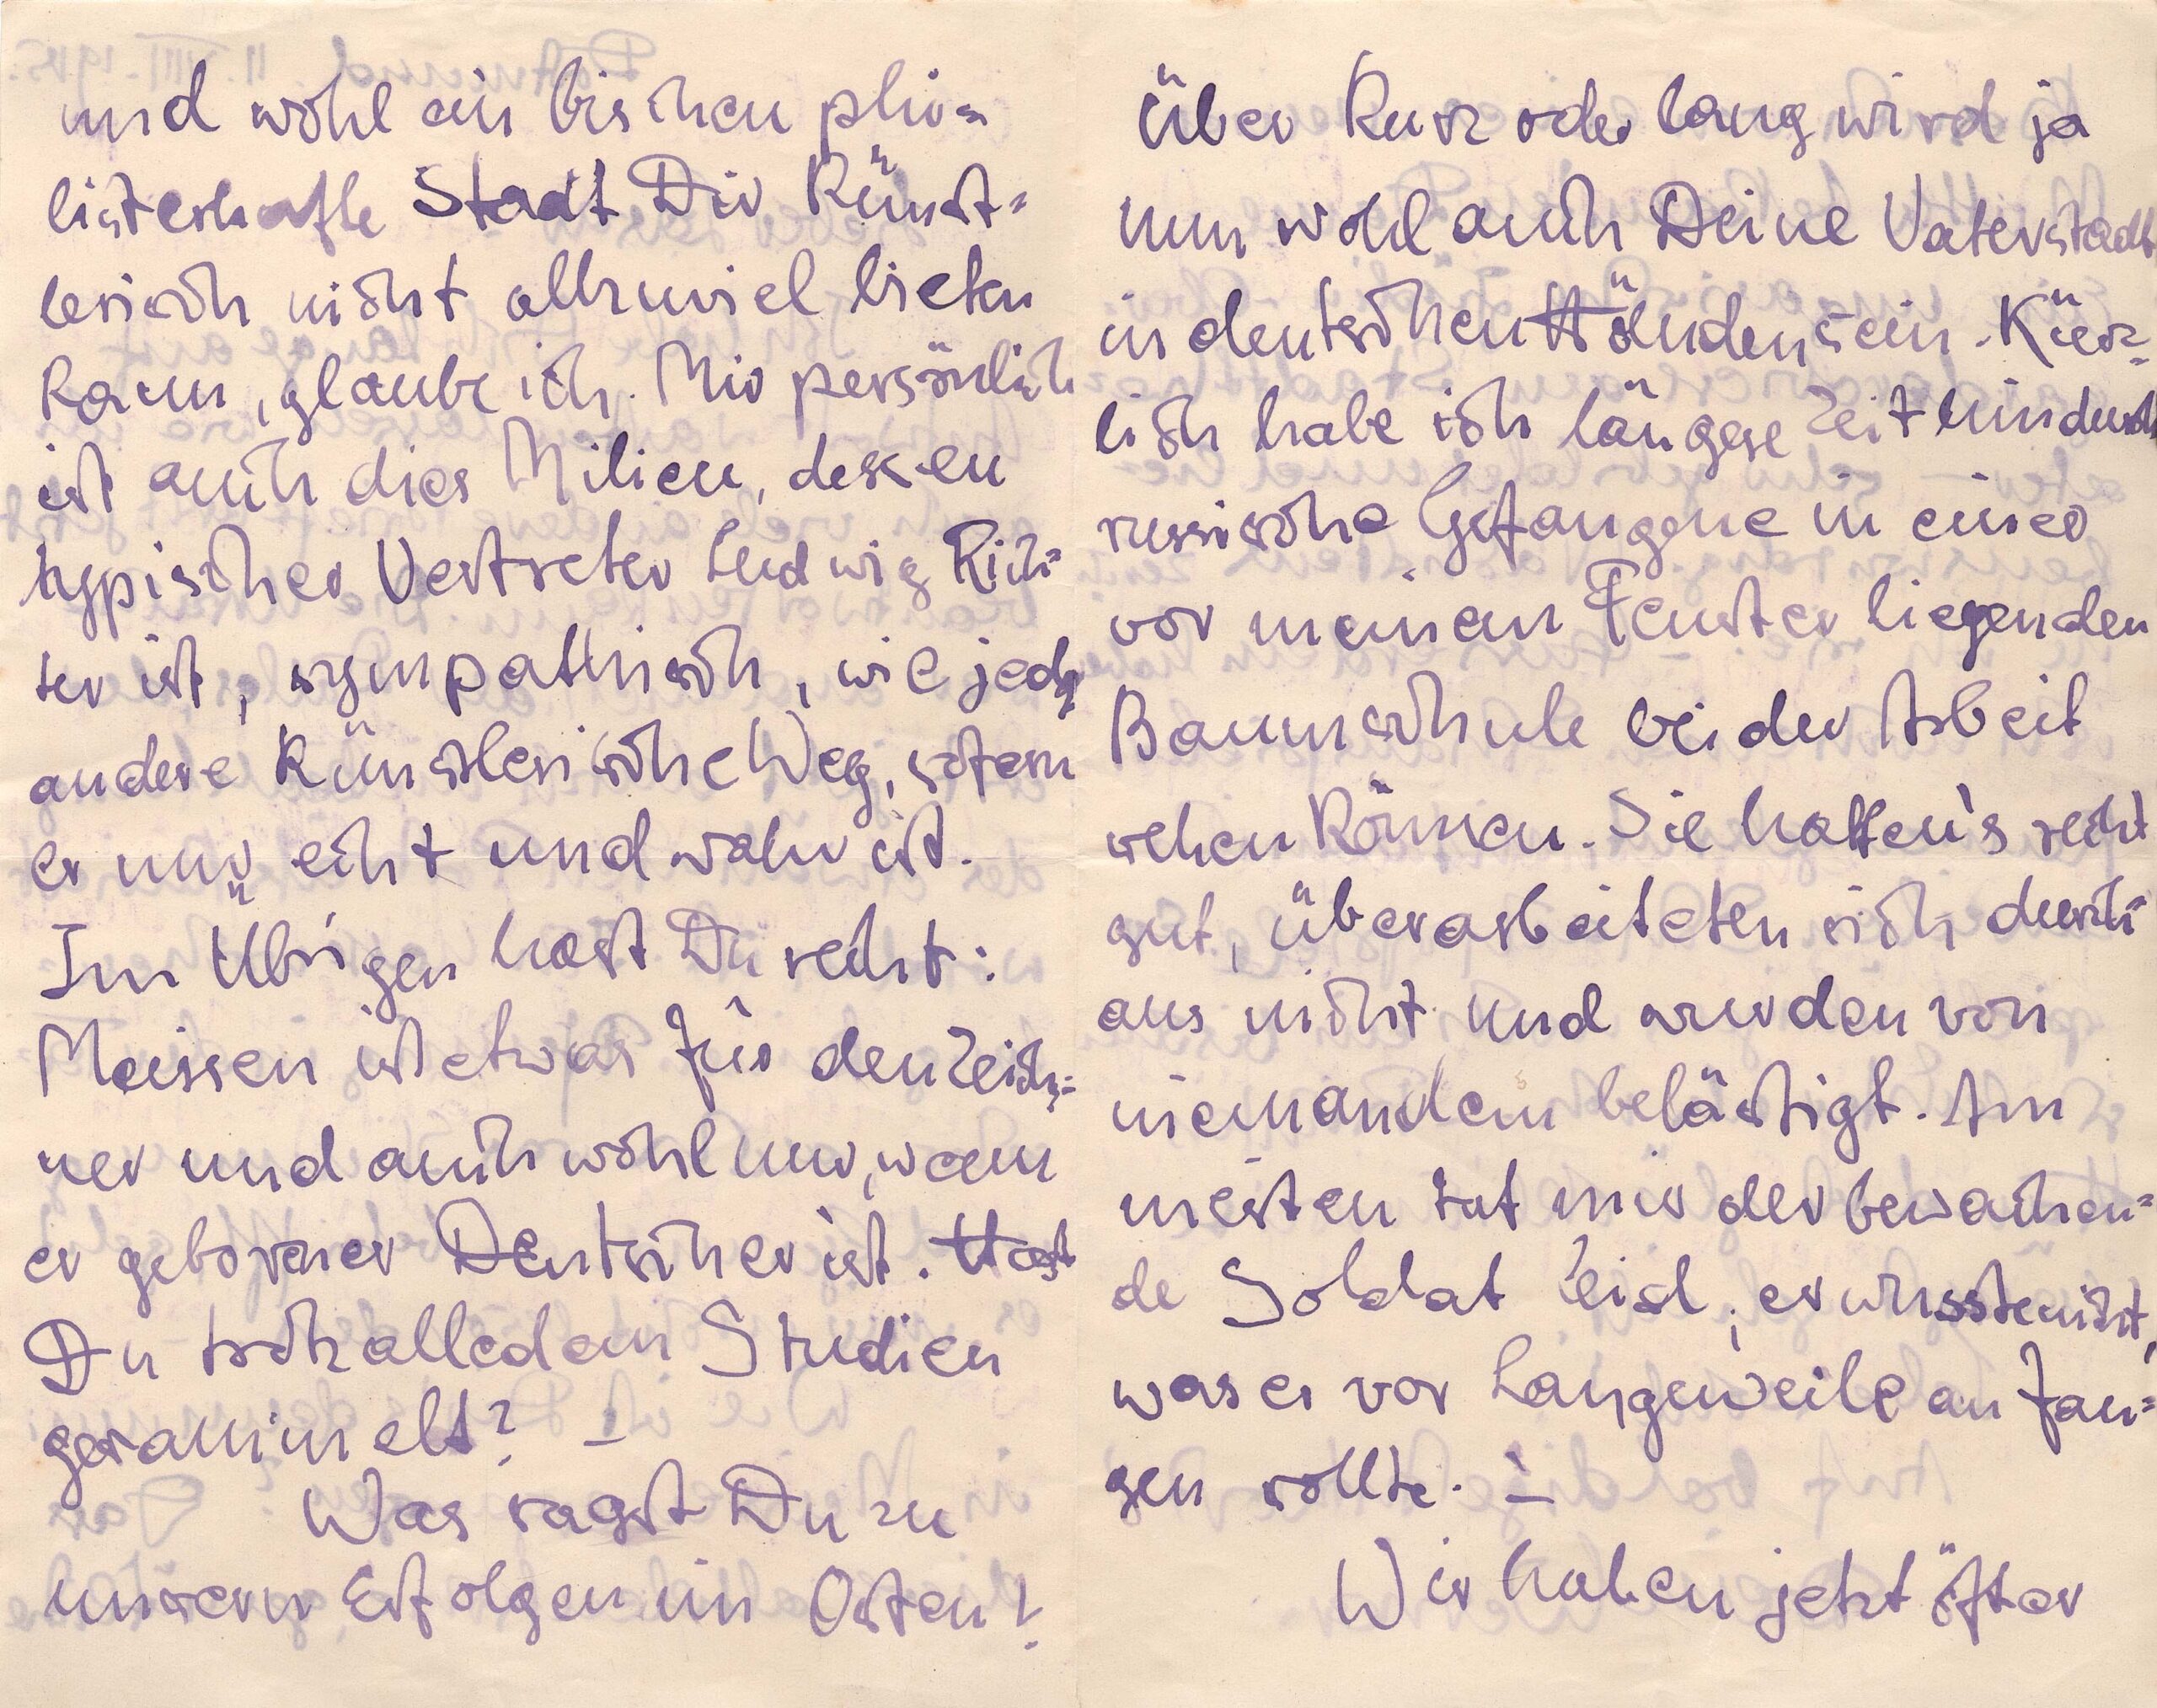 und wohl ein bischen phi=
listerhafte Stadt Dir künst=
lerisch nicht allzuviel bieten
kann, glaube ich. Mir persönlich
ist auch dies Milieu, dessen
typischer Vertreter Ludwig Rich=
ter ist, sympathisch, wie jeder
andere künstlerische Weg, sofern
er nur echt und wahr ist.
Im Übrigen hast Du recht:
Meissen ist etwas für den Zeich=
ner und auch wohl nur, wenn
er geborener Deutscher ist. Hast
Du trotz alledem Studien
gesammelt? –
Was sagst Du zu
unsern Erfolgen im Osten!
Über kurz oder lang wird ja
nun wohl auch Deine Vaterstadt
in deutschen Händen sein. Kürz=
lich habe ich längere Zeit hindurch
russische Gefangene in einer
vor meinem Fenster liegenden
Baumschule bei der Arbeit
sehen können. Sie hatten's recht
gut, überarbeiteten sich durch=
aus nicht und wurden von
niemandem belästigt. Am
meisten tat mir der bewachen=
de Soldat leid, er wusste nicht,
was er vor Langeweile anfan=
gen sollte. –
Wir haben jetzt öfter